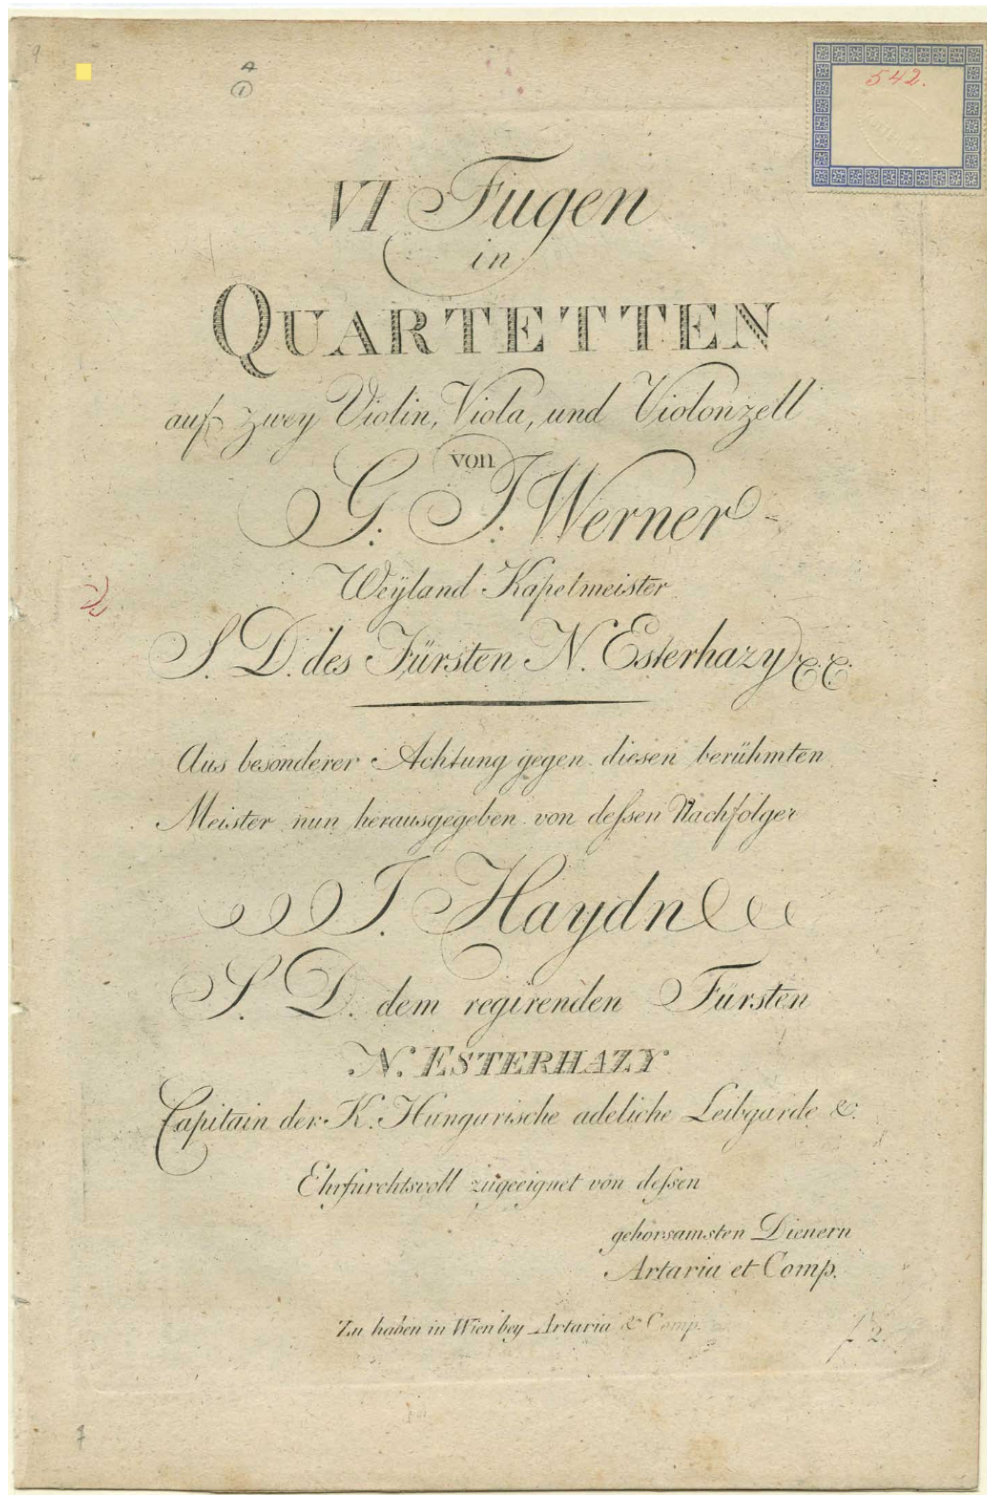 9
4
1
542.
VI Fugen
in
QUARTETTEN
auf zwey Violin, Viola, und Violonzell
von
G. J. Werner
Weÿland Kapelmeister
S. D. des Fürsten N. Esterhazy &. &.
Aus besonderer Achtung gegen diesen berühmten
Meister nun herausgegeben von dessen Nachfolger
J. Haydn
S. D. dem regirenden Fürsten
N. ESTERHAZY
Capitain der K. Hungarische adeliche Leibgarde &.
Ehrfurchtsvoll zugeeignet von dessen
gehorsamsten Dienern
Artaria et Comp.
Zu haben in Wien bey Artaria & Comp.
f 2.